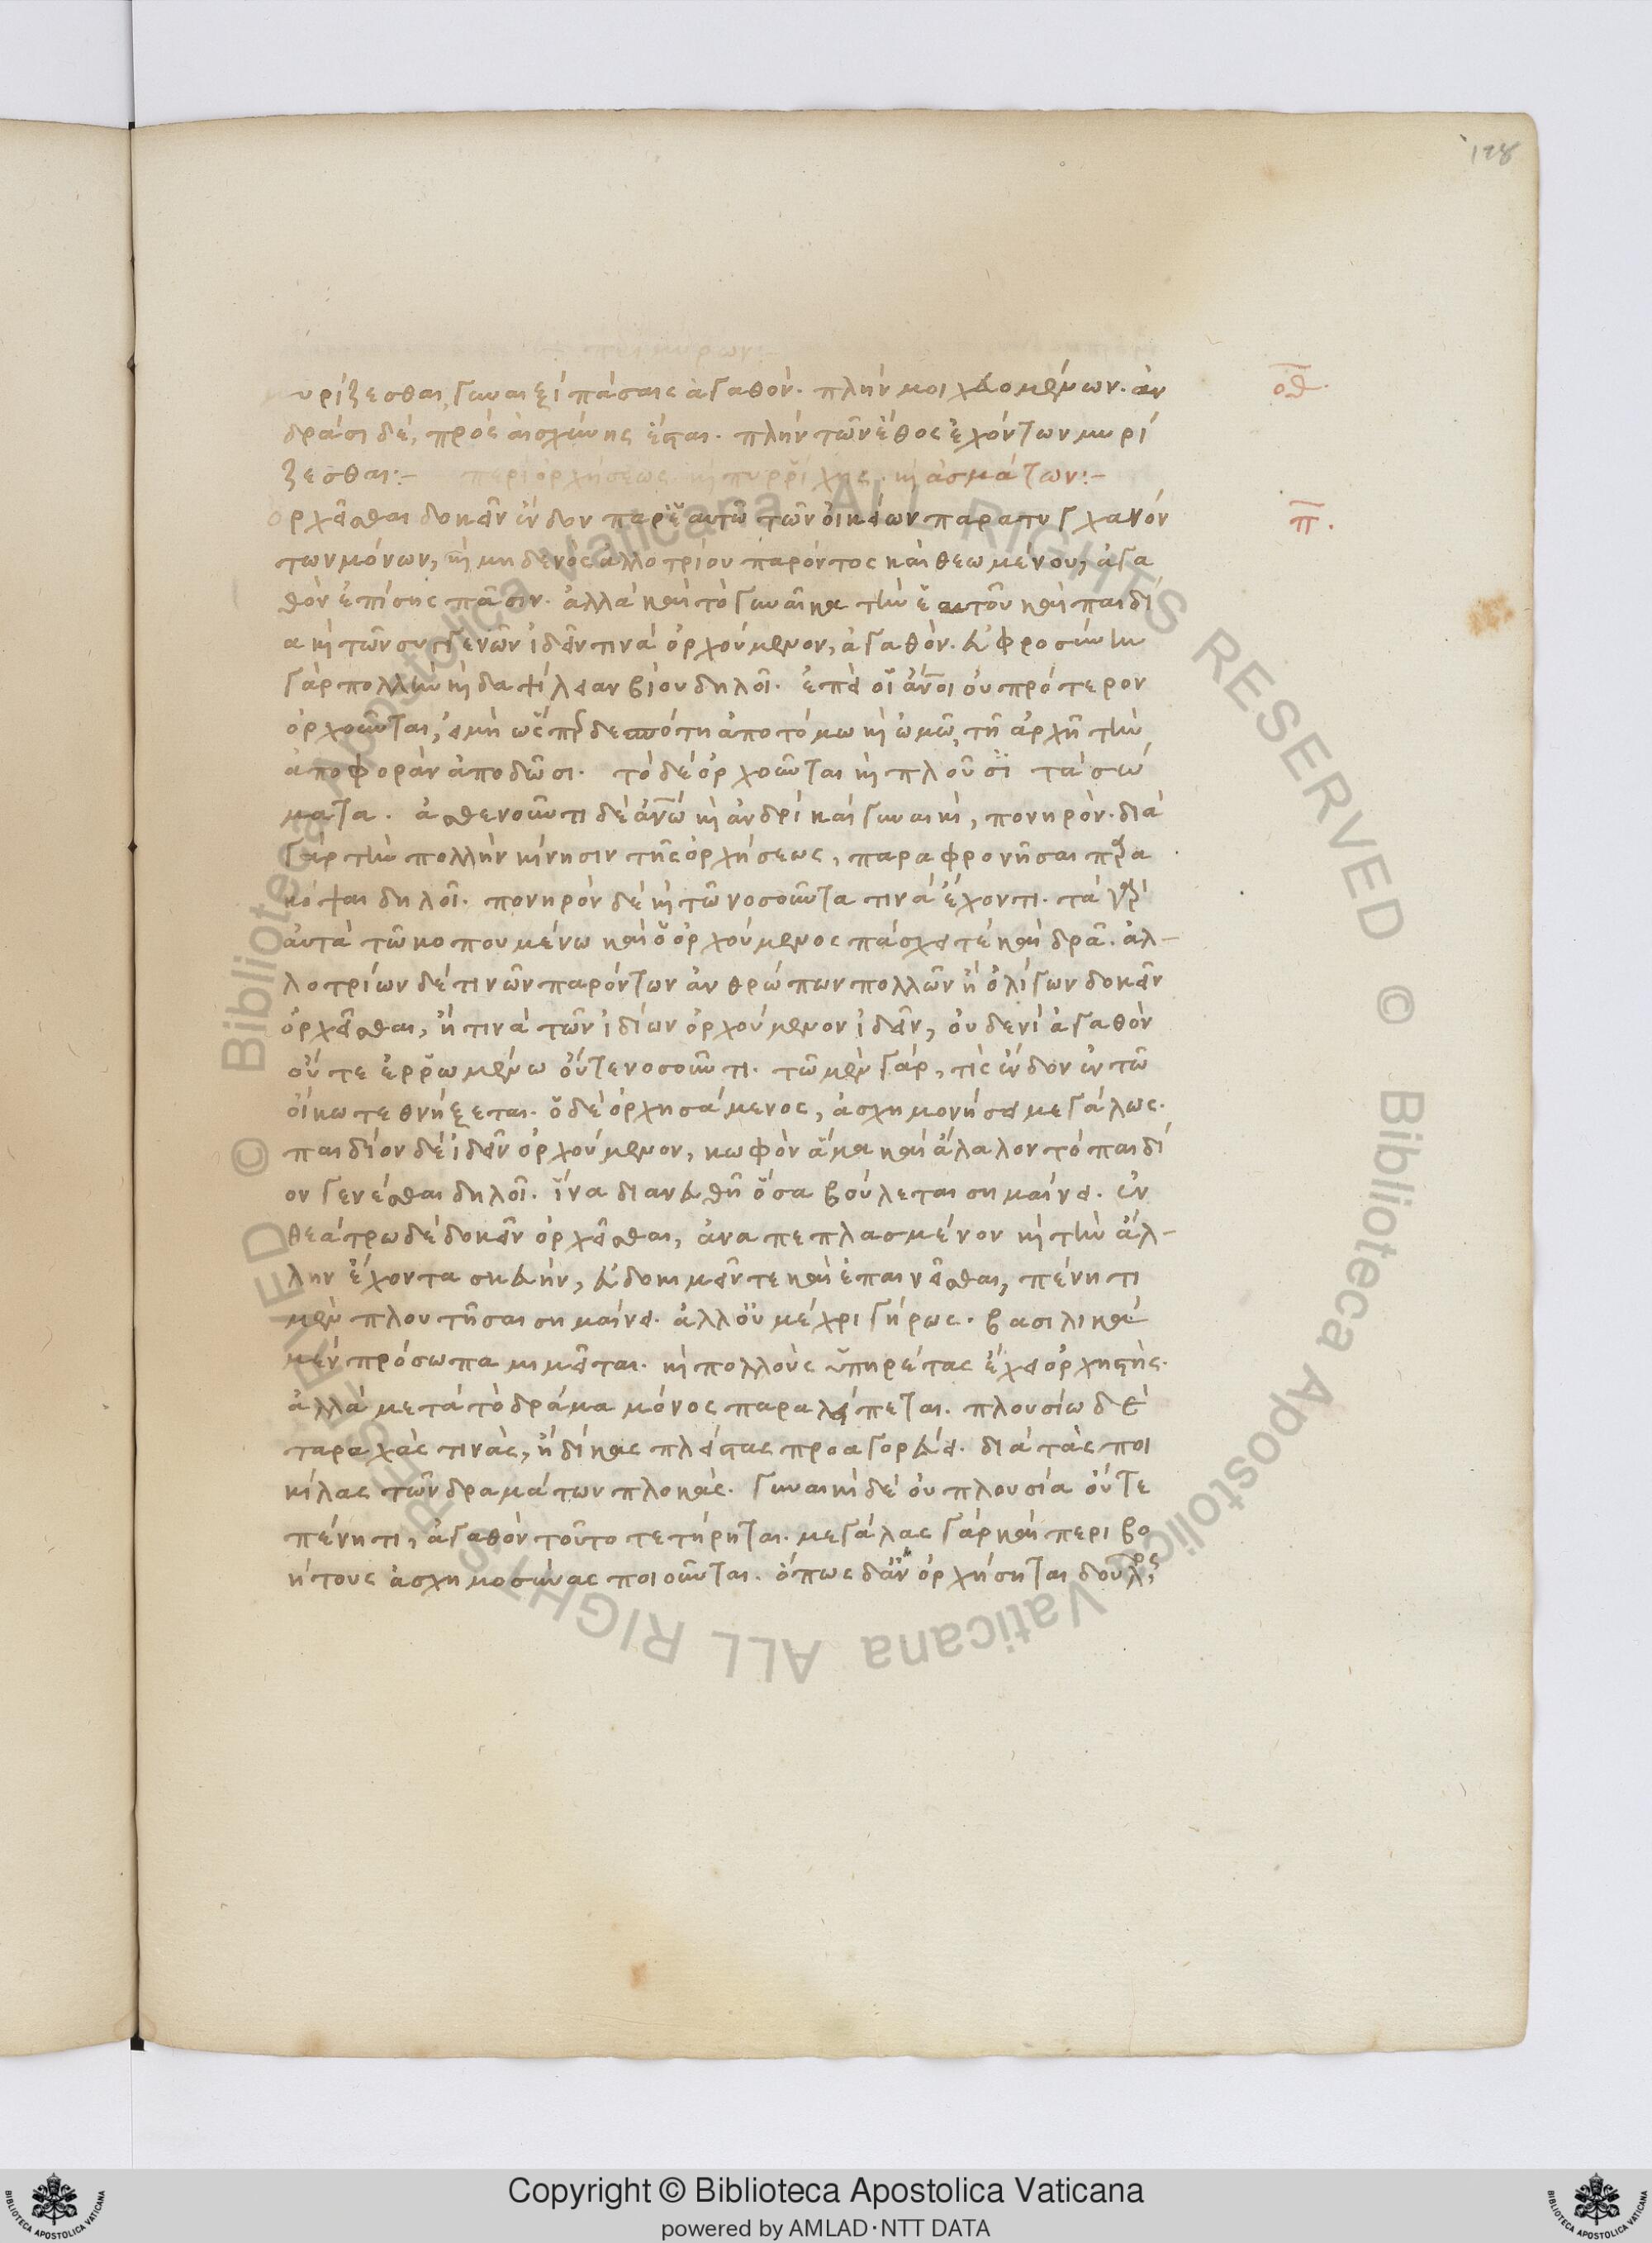 178
περὶ μύρων:-
μυρίζεσθαι γυναιξὶ πάσαις ἀγαθόν. πλὴν μοιχευομένων. ἀν
οθ.
δράσι δέ, πρὸς αἰσχύνης ἐστι. πλὴν τῶν ἔθος ἐχόντων μυρί
ζεσθαι:- περὶ ὀρχήσεως κ πυρρίχης. κ ἀσμάτων:-
ὀρχεῖσθαι δοκεῖν ἔνδον παρ' ἑαυτῶ τῶν οἰκείων παρατυγχανόν
π.
των μόνων, κ μηδενὸς αλλοτρίου παρόντος καὶ θεωμένου, ἀγα
θὸν ἐπίσης πᾶσιν. ἀλλὰ καὶ τὸ γυναῖκα τὴν ἑαυτοῦ καὶ παιδί
α κ τῶν συγγενῶν ἰδεῖν τινὰ ὀρχούμενον, ἀγαθόν. εὐφροσύνην
γὰρ πολλὴν κ δαψίλειαν βίου δηλοῖ. ἐπεὶ οἱ ἄνοι οὐ πρότερον
ὀρχοῦνται, εἰ μὴ ὥσπερ δεσπότη ἀποτόμω κ ὠμῶ, τῆ ἀρχῆ τὴν
ἀποφορὰν ἀποδῶσι. τὸ δὲ ὀρχοῦνται κ πλοῦσι τὰ σώ
ματα. ἀσθενοῦντι δὲ ἀνω κ ἀνδρὶ καὶ γυναικὶ, πονηρόν. διὰ
γὰρ τὴν πολλὴν κίνησιν τῆς ὀρχήσεως, παραφρονῆσαι πρα
κόψαι δηλοῖ. πονηρὸν δὲ κ τῶ νοσοῦντα τινὰ ἔχοντι. τὰ γρ
αὐτὰ τῶ κοπουμένω καὶ ὁ ὀρχούμενος πάσχει τὲ καὶ δρᾶ. ἀλ-
λοτρίων δέ τινῶν παρόντων ἀνθρώπων πολλῶν ἢ ὀλίγων δοκεῖν
ὀρχεῖσθαι, ἤ τινὰ τῶν ἰδίων ὀρχούμενον ἰδεῖν, οὐδενὶ ἀγαθὸν
οὔτε ἐρρωμένω οὔτε νοσοῦντι. τῶ μὲν γάρ, τὶς ἔνδον ἐν τῶ
οἴκω τεθνήξεται. ὁ δὲ ὀρχησάμενος, ἀσχημονήσει μεγάλως.
παιδίον δὲ ἰδεῖν ὀρχούμενον, κωφὸν ἅμα καὶ ἄλαλον τὸ παιδί
ον γενέσθαι δηλοῖ. ἵνα διανευθῆ ὅσα βούλεται σημαίνει. ἐν
θεάτρω δὲ δοκεῖν ὀρχεῖσθαι, ἀναπεπλασμένον κ τὴν ἄλ-
λην ἔχοντα σκευὴν, εὐδοκιμεῖν τε καὶ ἐπαινεῖσθαι, πένητι
μὲν πλουτῆσαι σημαίνει. ἀλλ' οὐ μέχρι γήρως. βασιλικὰ
μὲν πρόσωπα μιμεῖται. κ πολλοὺς ὑπηρέτας ἔχει ὀρχηστής.
ἀλλὰ μετὰ τὸ δράμα μόνος παραλείπεται. πλουσίω δὲ
ταραχάς τινὰς, ἢ δίκας πλείστας προαγορεύει. διὰ τὰς ποι
κίλας τῶν δραμάτων πλοκάς. γυναικὶ δὲ οὐ πλουσία οὔτε
πένητι, ἀγαθὸν τοῦτο τετήρηται. μεγάλας γὰρ καὶ περιβο
ήτους ἀσχημοσύνας ποιοῦνται. ὅπως δ' ἂν ὀρχήσηται δοῦλος,
Copyright © Biblioteca Apostolica Vaticana
powered by AMLAD·NTT DATA